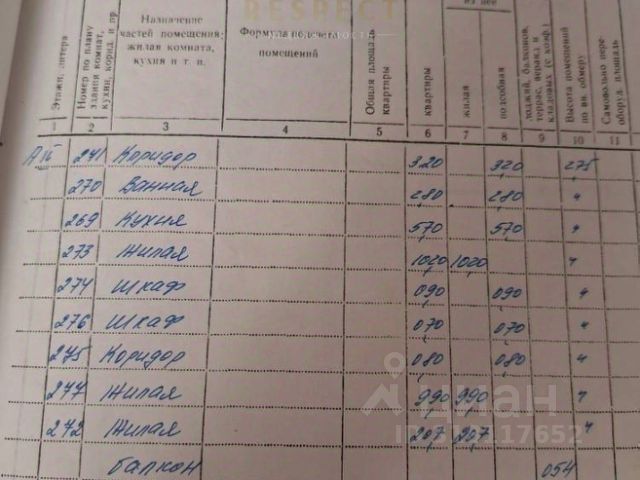 RESPECT
из нее
Этажи, литера
Номер по плану здания комнат, кухни, корид. и пр.
Назначение частей помещения: жилая комната, кухня и т. п.
Формула подсчета помещений
Общая площадь квартиры
квартиры
жилая
подсобная
лоджий, балконов, террас, веранд и кладовых (с коэф.)
Высота помещений по вн. обмеру
Самовольно пере- оборуд. площадь
1 2 3 4 5 6 7 8 9 10 11
241 Коридор 3,20 3,20 2,75
270 Ванная 2,80 2,80 "
269 Кухня 5,70 5,70 "
273 Жилая 10,20 10,20 "
274 Шкаф 0,90 0,90 "
276 Шкаф 0,70 0,70 "
275 Коридор 0,80 0,80 "
277 Жилая 9,90 9,90 "
272 Жилая 20,7 20,7 "
балкон 0,54
циан